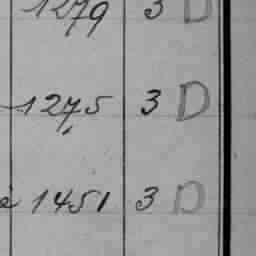 1279 3 D
1275 3 D
è 1451 3 D